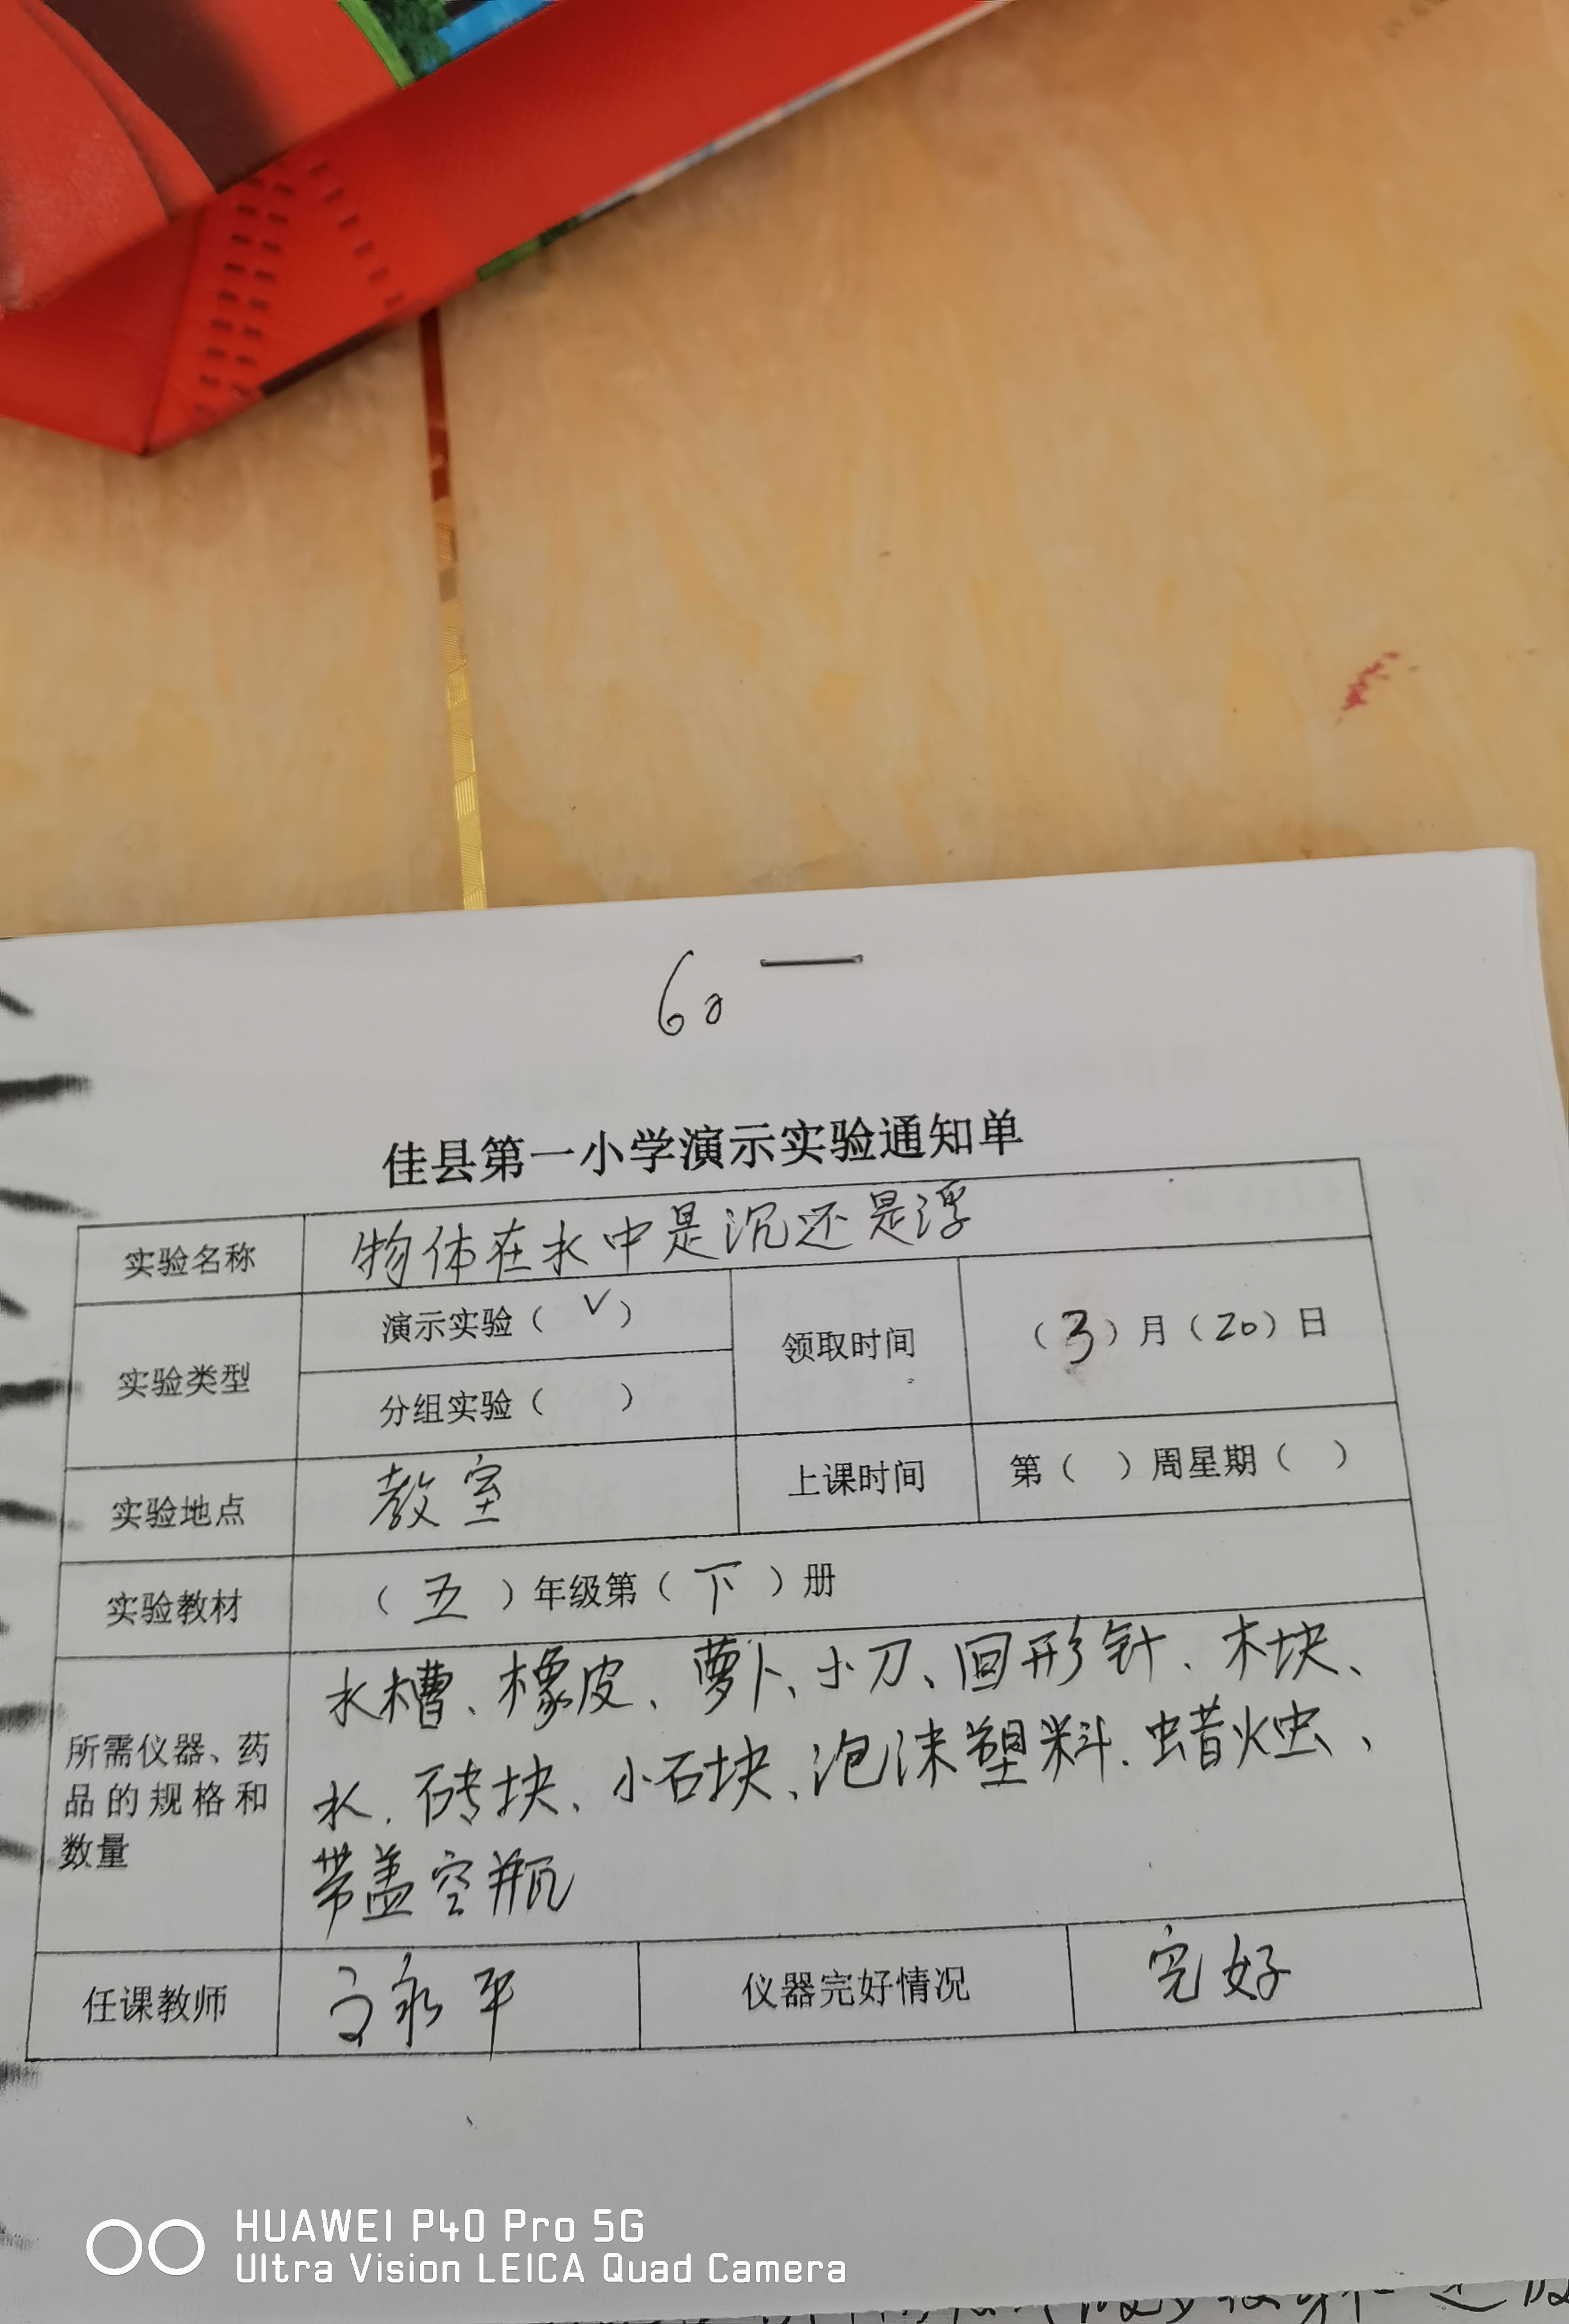 60
佳县第一小学演示实验通知单
实验名称 物体在水中是沉还是浮
实验类型 演示实验（ √ ） 领取时间 （3）月（20）日
分组实验（ ）
实验地点 教室 上课时间 第（ ）周星期（ ）
实验教材 （五）年级第（下）册
所需仪器、药品的规格和数量
水槽、橡皮、萝卜、小刀、回形针、木块、
水、砖块、小石块、泡沫塑料、蜡烛、
带盖空瓶
任课教师 永平 仪器完好情况 完好
HUAWEI P40 Pro 5G
Ultra Vision LEICA Quad Camera